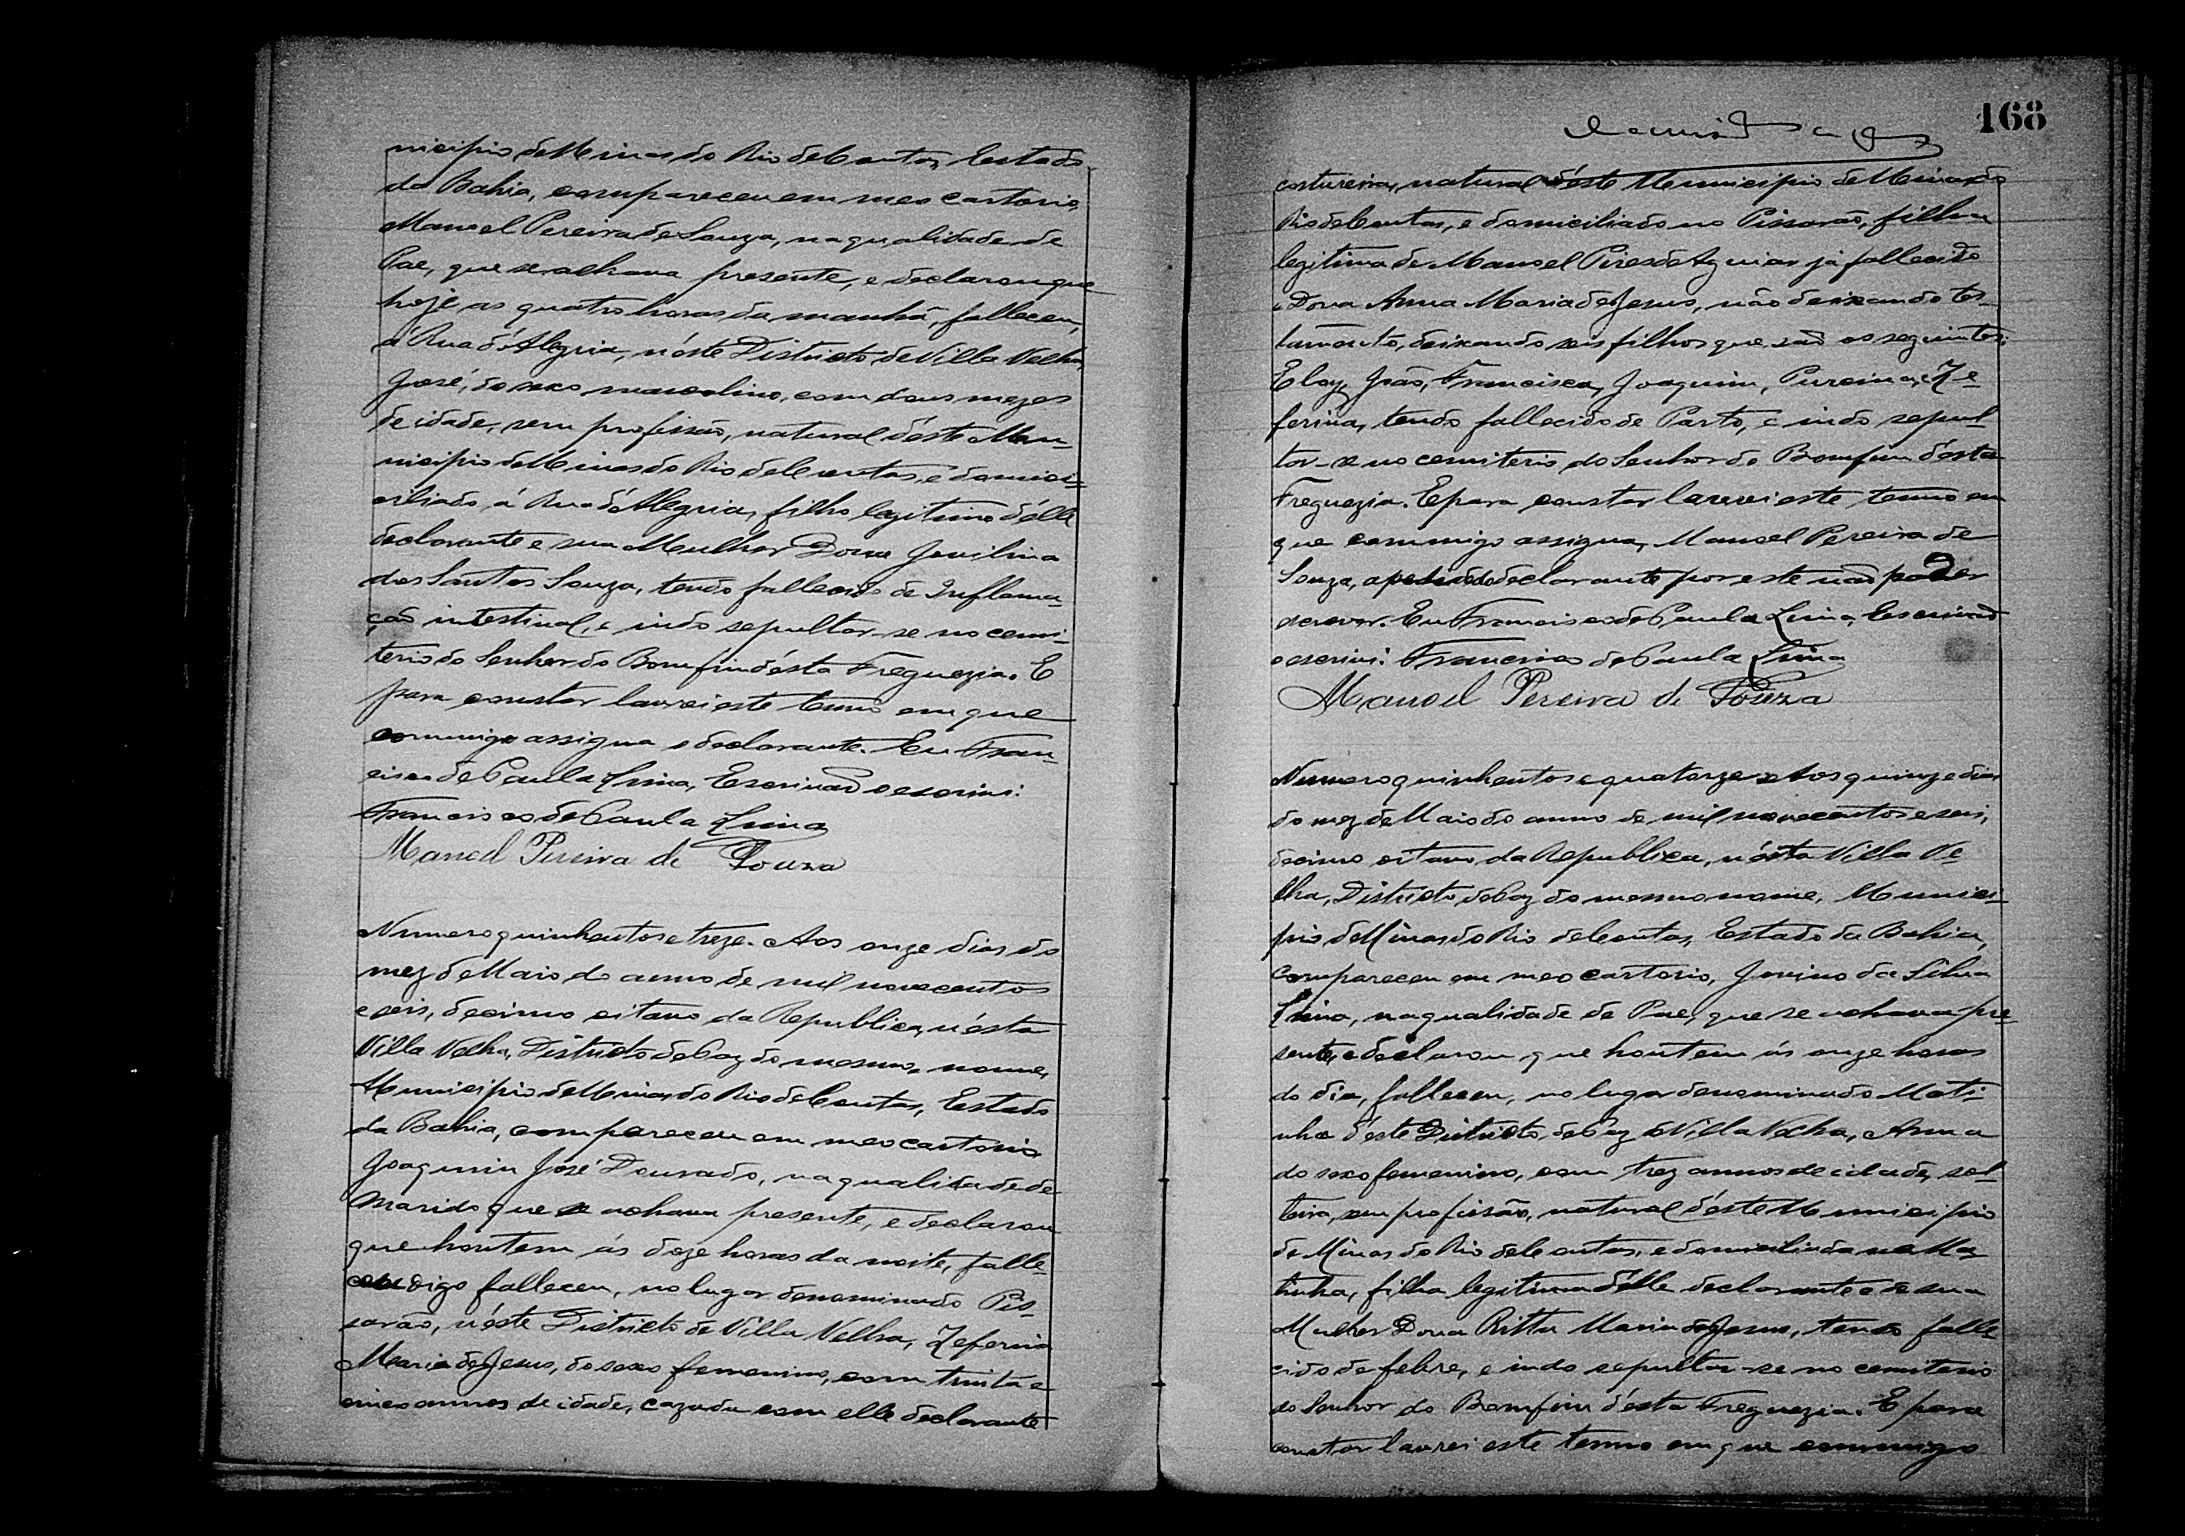 nicipio de Minas do Rio de Contas, Estado
da Bahia, compareceu em meo cartorio,
Manoel Pereira de Souza, na qualidade de
Pae, que se achava presente, e declarou que
hoje as quatro horas da manhã, falleceu,
á Rua d'Alegria, n'éste Districto de Villa Velha,
José, do sexo masculino, com dous mezes
de idade, sem profissão, natural d'éste Mu-
nicipio de Minas do Rio de Contas, e domici-
ciliado, á Rua d'Alegria, filho legitimo d'élle
declarante e sua Mulher Dona Jovilina
dos Santos Souza, tendo fallecido de Inflama-
ção intestinal, e indo sepultar-se no cemi-
terio do Senhor do Bomfim d'ésta Freguezia. E
para constar lavrei este termo em que
commigo assigna o declarante. Eu Fran-
cisco de Paula Lima, Escrivão o escrivi.
Francisco de Paula Lima
Manoel Pereira de Souza
Numero quinhentos e treze. Aos onze dias do
mez de Maio do anno de mil novecentos
e seis, decimo oitavo da Republica, n'ésta
Villa Velha, Districto de Paz do mesmo nome,
Municipio de Minas do Rio de Contas, Estado
da Bahia, compareceu em meo cartorio
Joaquim José Dourado, na qualidade de
Marido que se achava presente, e declarou
que hontem ás doze horas da noite, falle-
ceu digo falleceu, no lugar denominado Pis-
sarão, n'éste Districto de Villa Velha, Zeferina
Maria de Jesus, do sexo femenino, com trinta e
cinco annos de idade, cazada com elle declarante
168
costureira, natural d'éste Municipio de Minas do
Rio de Contas, e domiciliado no Pissarão, filha
legitima de Manoel Pires de Aguiar já fallecido
e Dona Anna Maria de Jesus, não deixando tes-
tamento, deixando seis filhos que são os seguintes:
Eloy, João, Francisca, Joaquim, Pureina, e Ze-
ferina, tendo fallecido de Parto, e indo sepul-
tar-se no cemiterio do Senhor do Bomfim d'ésta
Freguezia. E para constar lavrei este termo em
que commigo assigna, Manoel Pereira de
Souza, a pedido do declarante por este não poder
escrever. Eu Francisco de Paula Lima, Escrivão
o escrivi. Francisco de Paula Lima
Manoel Pereira de Souza
Numero quinhentos e quatorze. Aos quinze dias
do mez de Maio do anno de mil novecentos e seis,
decimo oitavo da Republica, n'ésta Villa Ve-
lha, Districto de Paz do mesmo nome, Munici-
pio de Minas do Rio de Contas, Estado da Bahia,
compareceu em meo cartorio, Jovino da Silva
Lima, na qualidade de Pae, que se achava pre-
sente, e declarou que hontem ás onze horas
do dia, falleceu, no lugar denominado Mati-
nha d'éste Districto de Paz de Villa Velha, Anna
do sexo femenino, com trez annos de idade, sol-
teira, sem profissão, natural d'éste Municipio
de Minas do Rio de Contas, e domiciliada na Ma-
tinha, filha legitima d'élle declarante e de sua
Mulher Dona Ritta Maria de Jesus, tendo falle-
cido de febre, e indo sepultar-se no cemiterio
do Senhor do Bomfim d'ésta Freguezia. E para
constar lavrei este termo em que commigo